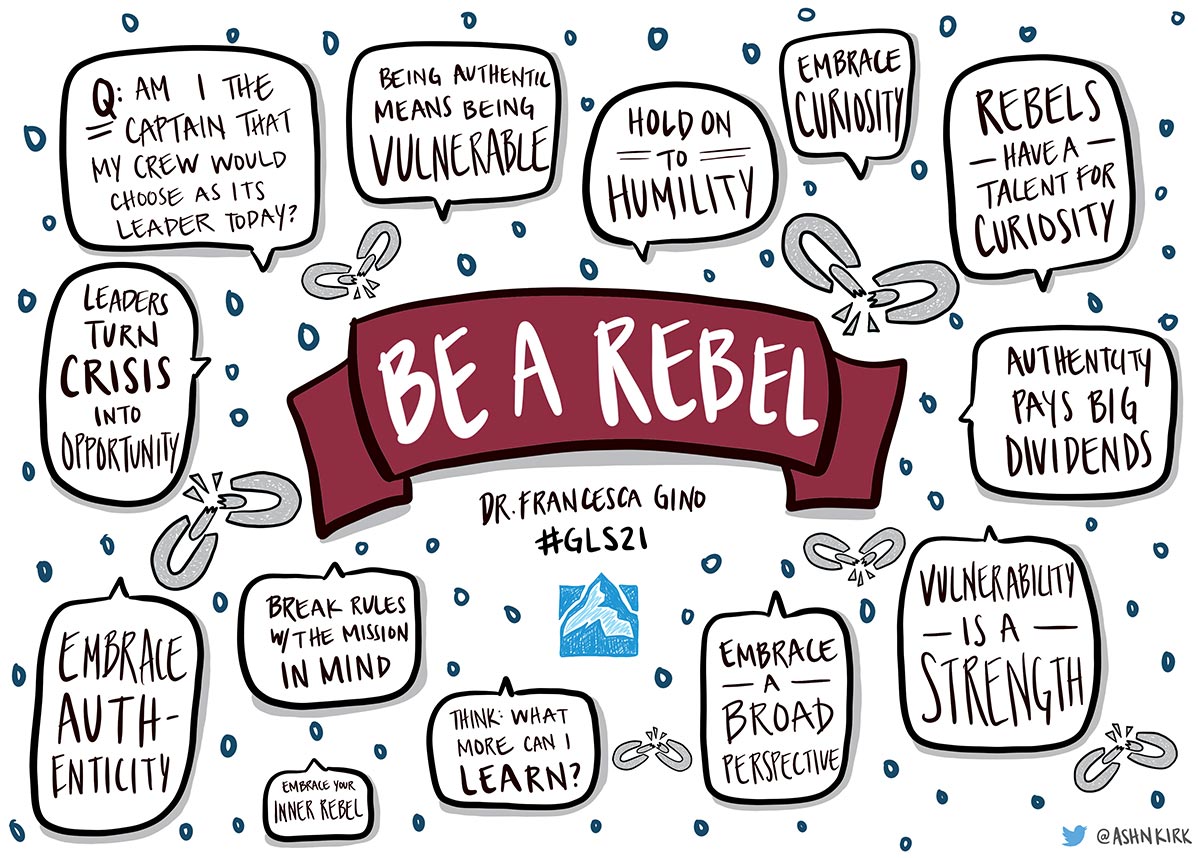 Q: AM I THE
CAPTAIN THAT
MY CREW WOULD
CHOOSE AS ITS
LEADER TODAY?
BEING AUTHENTIC
MEANS BEING
VULNERABLE
HOLD ON
TO
HUMILITY
EMBRACE
CURIOSITY
REBELS
HAVE A
TALENT FOR
CURIOSITY
LEADERS
TURN
CRISIS
INTO
OPPORTUNITY
BE A REBEL
AUTHENTCITY
PAYS BIG
DIVIDENDS
DR. FRANCESCA GINO
#GLS21
EMBRACE
AUTH-
ENTICITY
BREAK RULES
W/THE MISSION
IN MIND
EMBRACE YOUR
INNER REBEL
THINK: WHAT
MORE CAN I
LEARN?
EMBRACE
A
BROAD
PERSPECTIVE
VULNERABILITY
IS A
STRENGTH
@ASHNKIRK